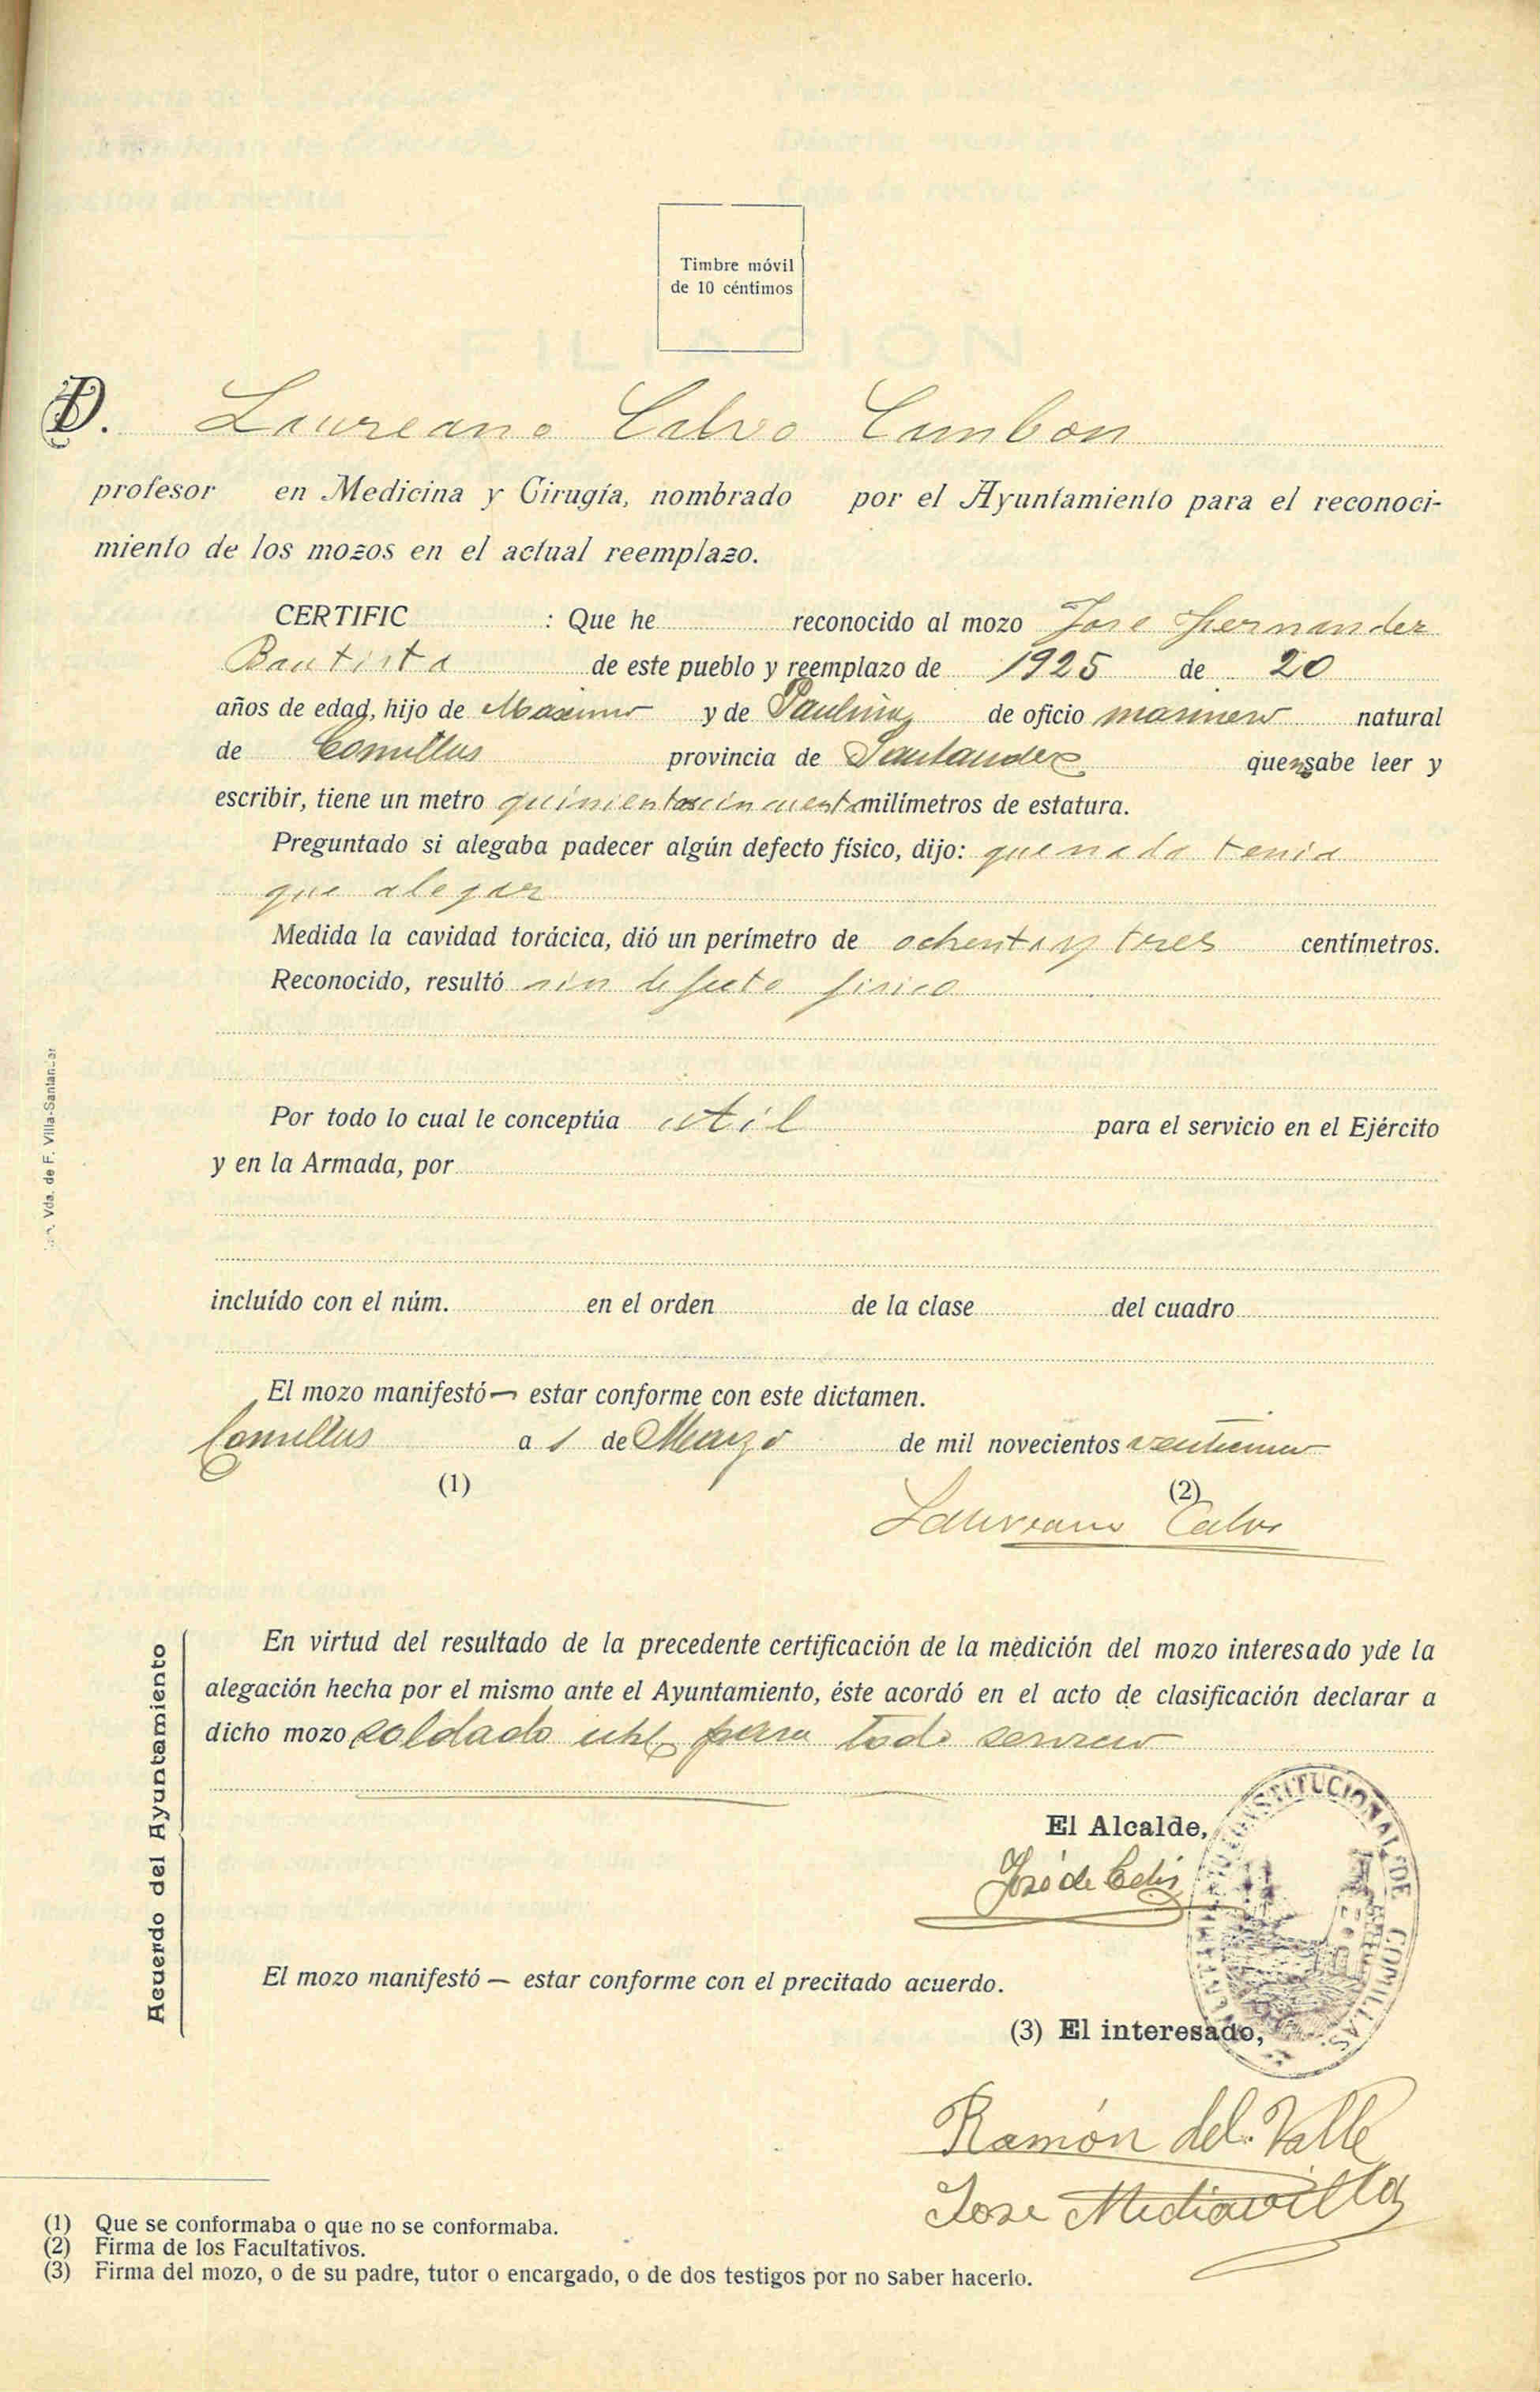 Timbre móvil
de 10 céntimos
FILIACIÓN
D. Laureano Calvo Cumbon
profesor en Medicina y Cirugía, nombrado por el Ayuntamiento para el reconoci-
miento de los mozos en el actual reemplazo.
CERTIFIC : Que he reconocido al mozo Jose Fernandez
Bautista de este pueblo y reemplazo de 1925 de 20
años de edad, hijo de Maximo y de Paulina de oficio marinero natural
de Comillas provincia de Santander que sabe leer y
escribir, tiene un metro quinientos cincuenta milímetros de estatura.
Preguntado si alegaba padecer algún defecto físico, dijo: que nada tenia
que alegar
Medida la cavidad torácica, dió un perímetro de ochenta y tres centímetros.
Reconocido, resultó sin defecto fisico
Por todo lo cual le conceptúa util para el servicio en el Ejército
y en la Armada, por
incluído con el núm. en el orden de la clase del cuadro
El mozo manifestó — estar conforme con este dictamen.
Comillas a 1 de Marzo de mil novecientos
(1) (2)
Laureano Calvo
Acuerdo del Ayuntamiento
En virtud del resultado de la precedente certificación de la medición del mozo interesado yde la
alegación hecha por el mismo ante el Ayuntamiento, éste acordó en el acto de clasificación declarar a
dicho mozo soldado util para todo servicio
El Alcalde,
José de Celis
CONSTITUCIONAL DE COMILLAS
El mozo manifestó — estar conforme con el precitado acuerdo.
(3) El interesado,
Ramón del Valle
Jose Mediavilla
(1) Que se conformaba o que no se conformaba.
(2) Firma de los Facultativos.
(3) Firma del mozo, o de su padre, tutor o encargado, o de dos testigos por no saber hacerlo.
Vda. de F. Villa-Santander